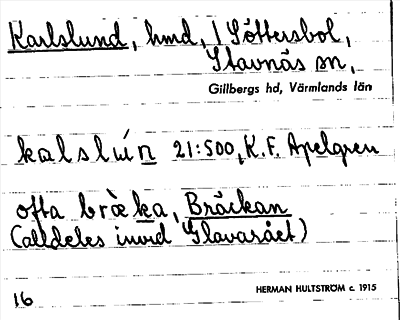 Karlslund, hmd, / Söttersbol,
Stavnäs sn,
Gillbergs hd, Värmlands län
kalslùn 21:500, K.F. Apelgren
ofta bræ̀ka, Bräckan
(alldeles invid Glavarået)
HERMAN HULTSTRÖM c. 1915
16